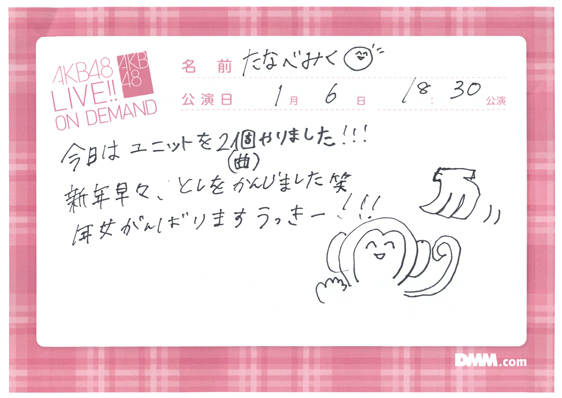 AKB48
LIVE!!
ON DEMAND
AKB
48
名 前 たなべみく
公演日 1月 6日 18:30公演
今日は ユニットを2個やりました!!!
(曲)
新年早々、としをかんじました笑
年女がんばりますうっきー!!!
DMM.com